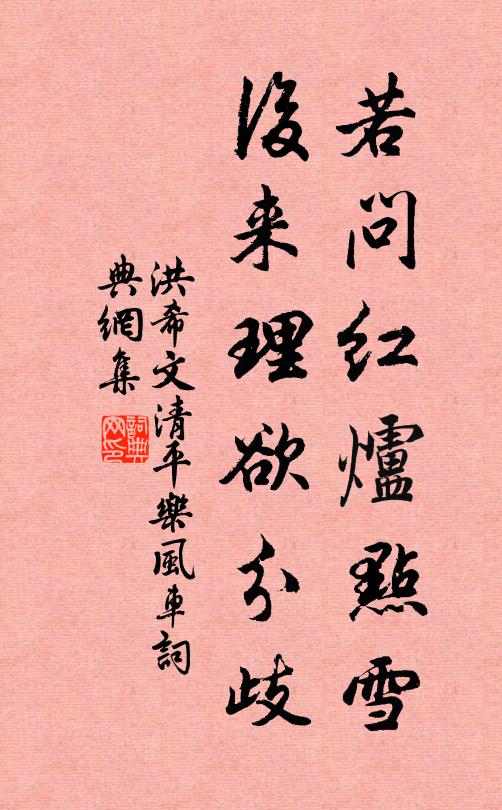 若问红爐點雪
後来理欲分歧
洪希文清平樂風車詞
典網集
詞典網印